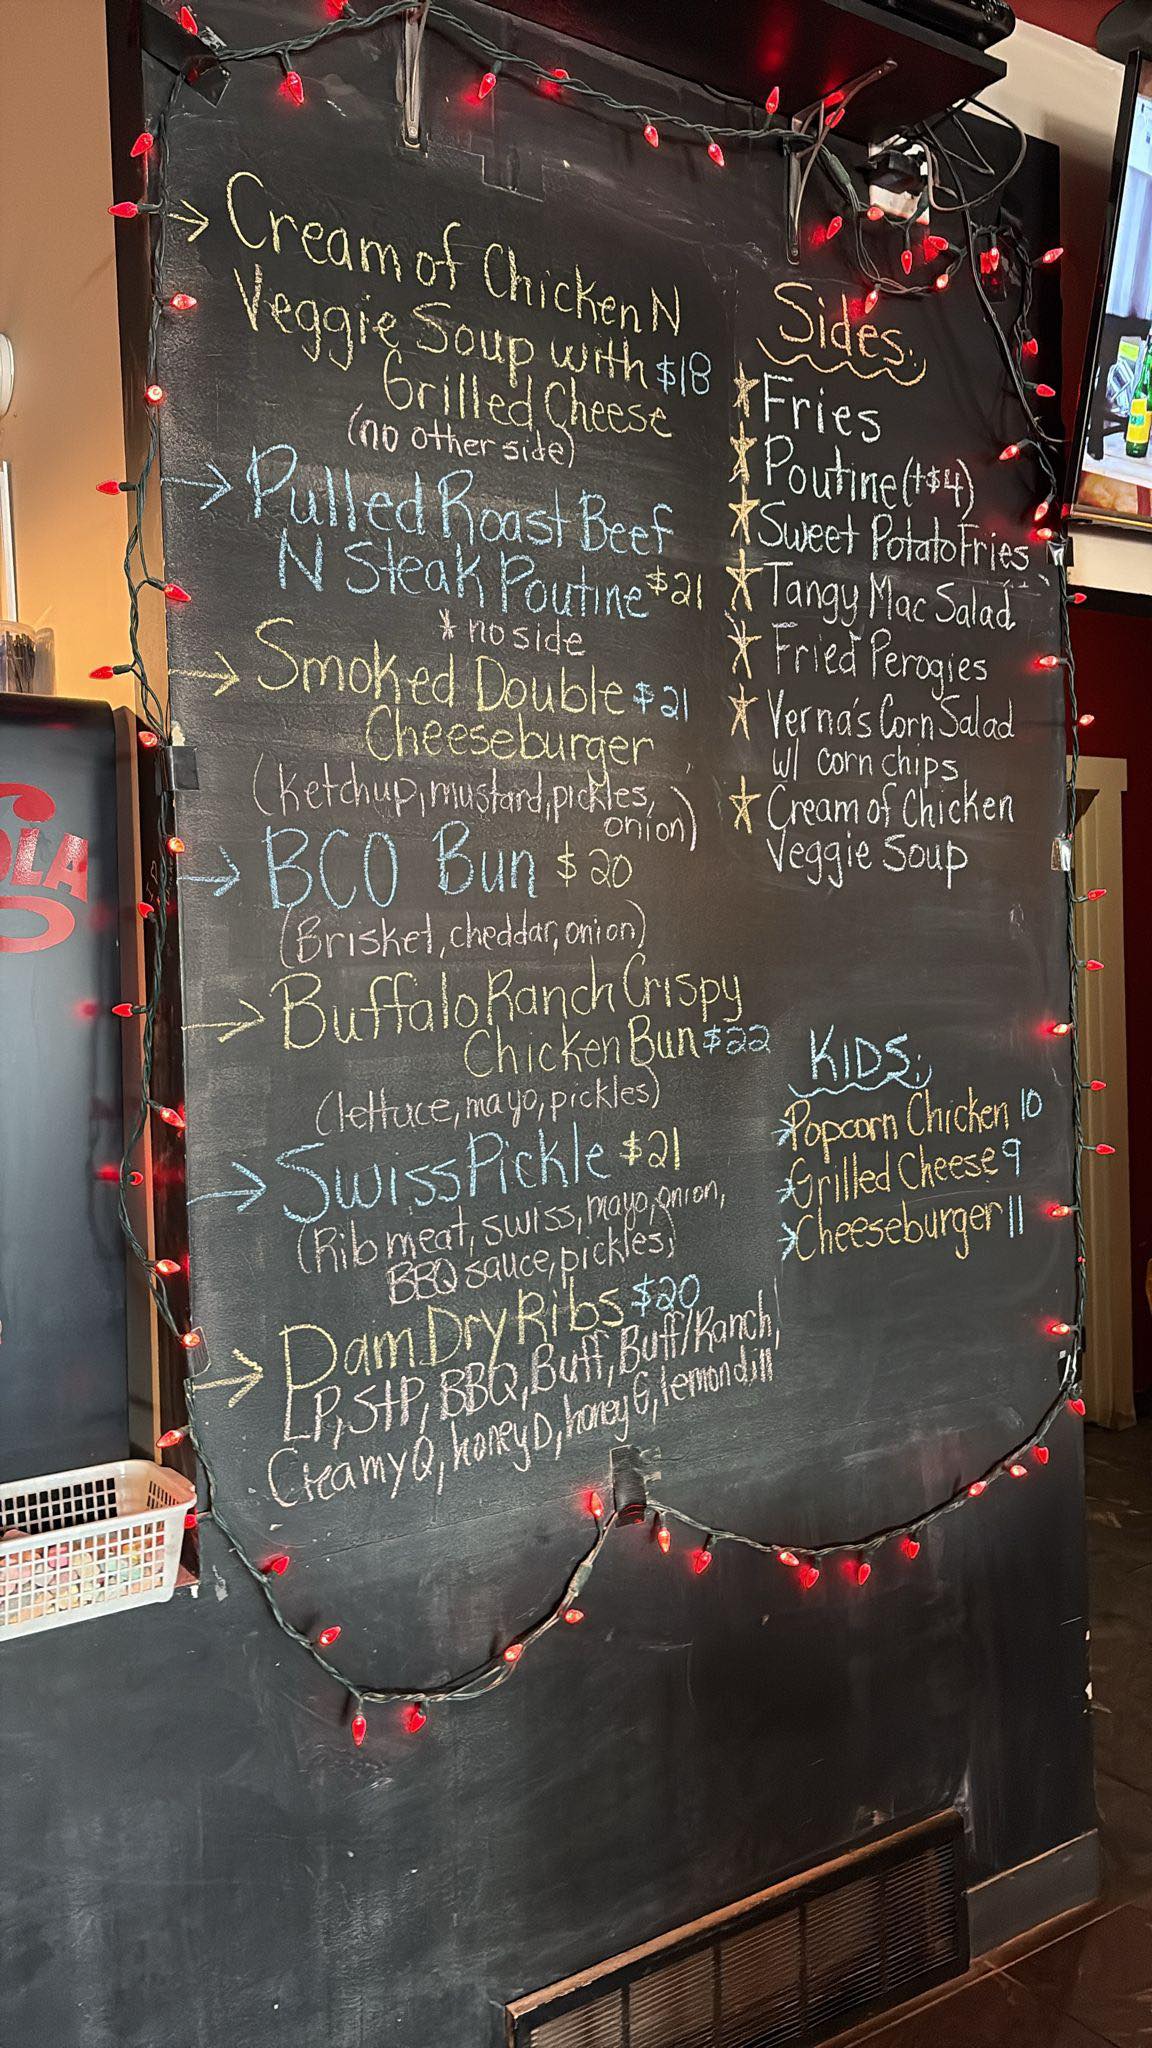 Cream of Chicken N
Veggie Soup with $18
Grilled Cheese
(no other side)
Pulled Roast Beef
N Steak Poutine $21
* no side
Smoked Double $21
Cheeseburger
(Ketchup, mustard, pickles,
onion)
BCO Bun $20
(Brisket, cheddar, onion)
Buffalo Ranch Crispy
Chicken Bun $22
(lettuce, mayo, pickles)
Swiss Pickle $21
(Rib meat, swiss, mayo, onion,
BBQ sauce, pickles)
Dam Dry Ribs $20
LP, S+P, BBQ, Buff, Buff/Ranch,
Creamy Q, honey D, honey G, lemon dill
Sides:
Fries
Poutine (+$4)
Sweet Potato Fries
Tangy Mac Salad
Fried Perogies
Verna's Corn Salad
w/ corn chips
Cream of Chicken
Veggie Soup
KIDS:
Popcorn Chicken 10
Grilled Cheese 9
Cheeseburger 11